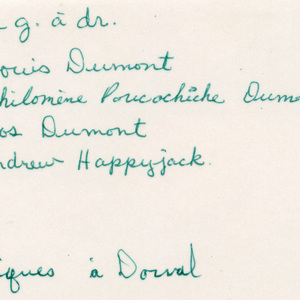 g. à dr.
ouis Dumont
hilomène Poucachiche Dumo
os Dumont
ndrew Happyjack.
iques à Dorval